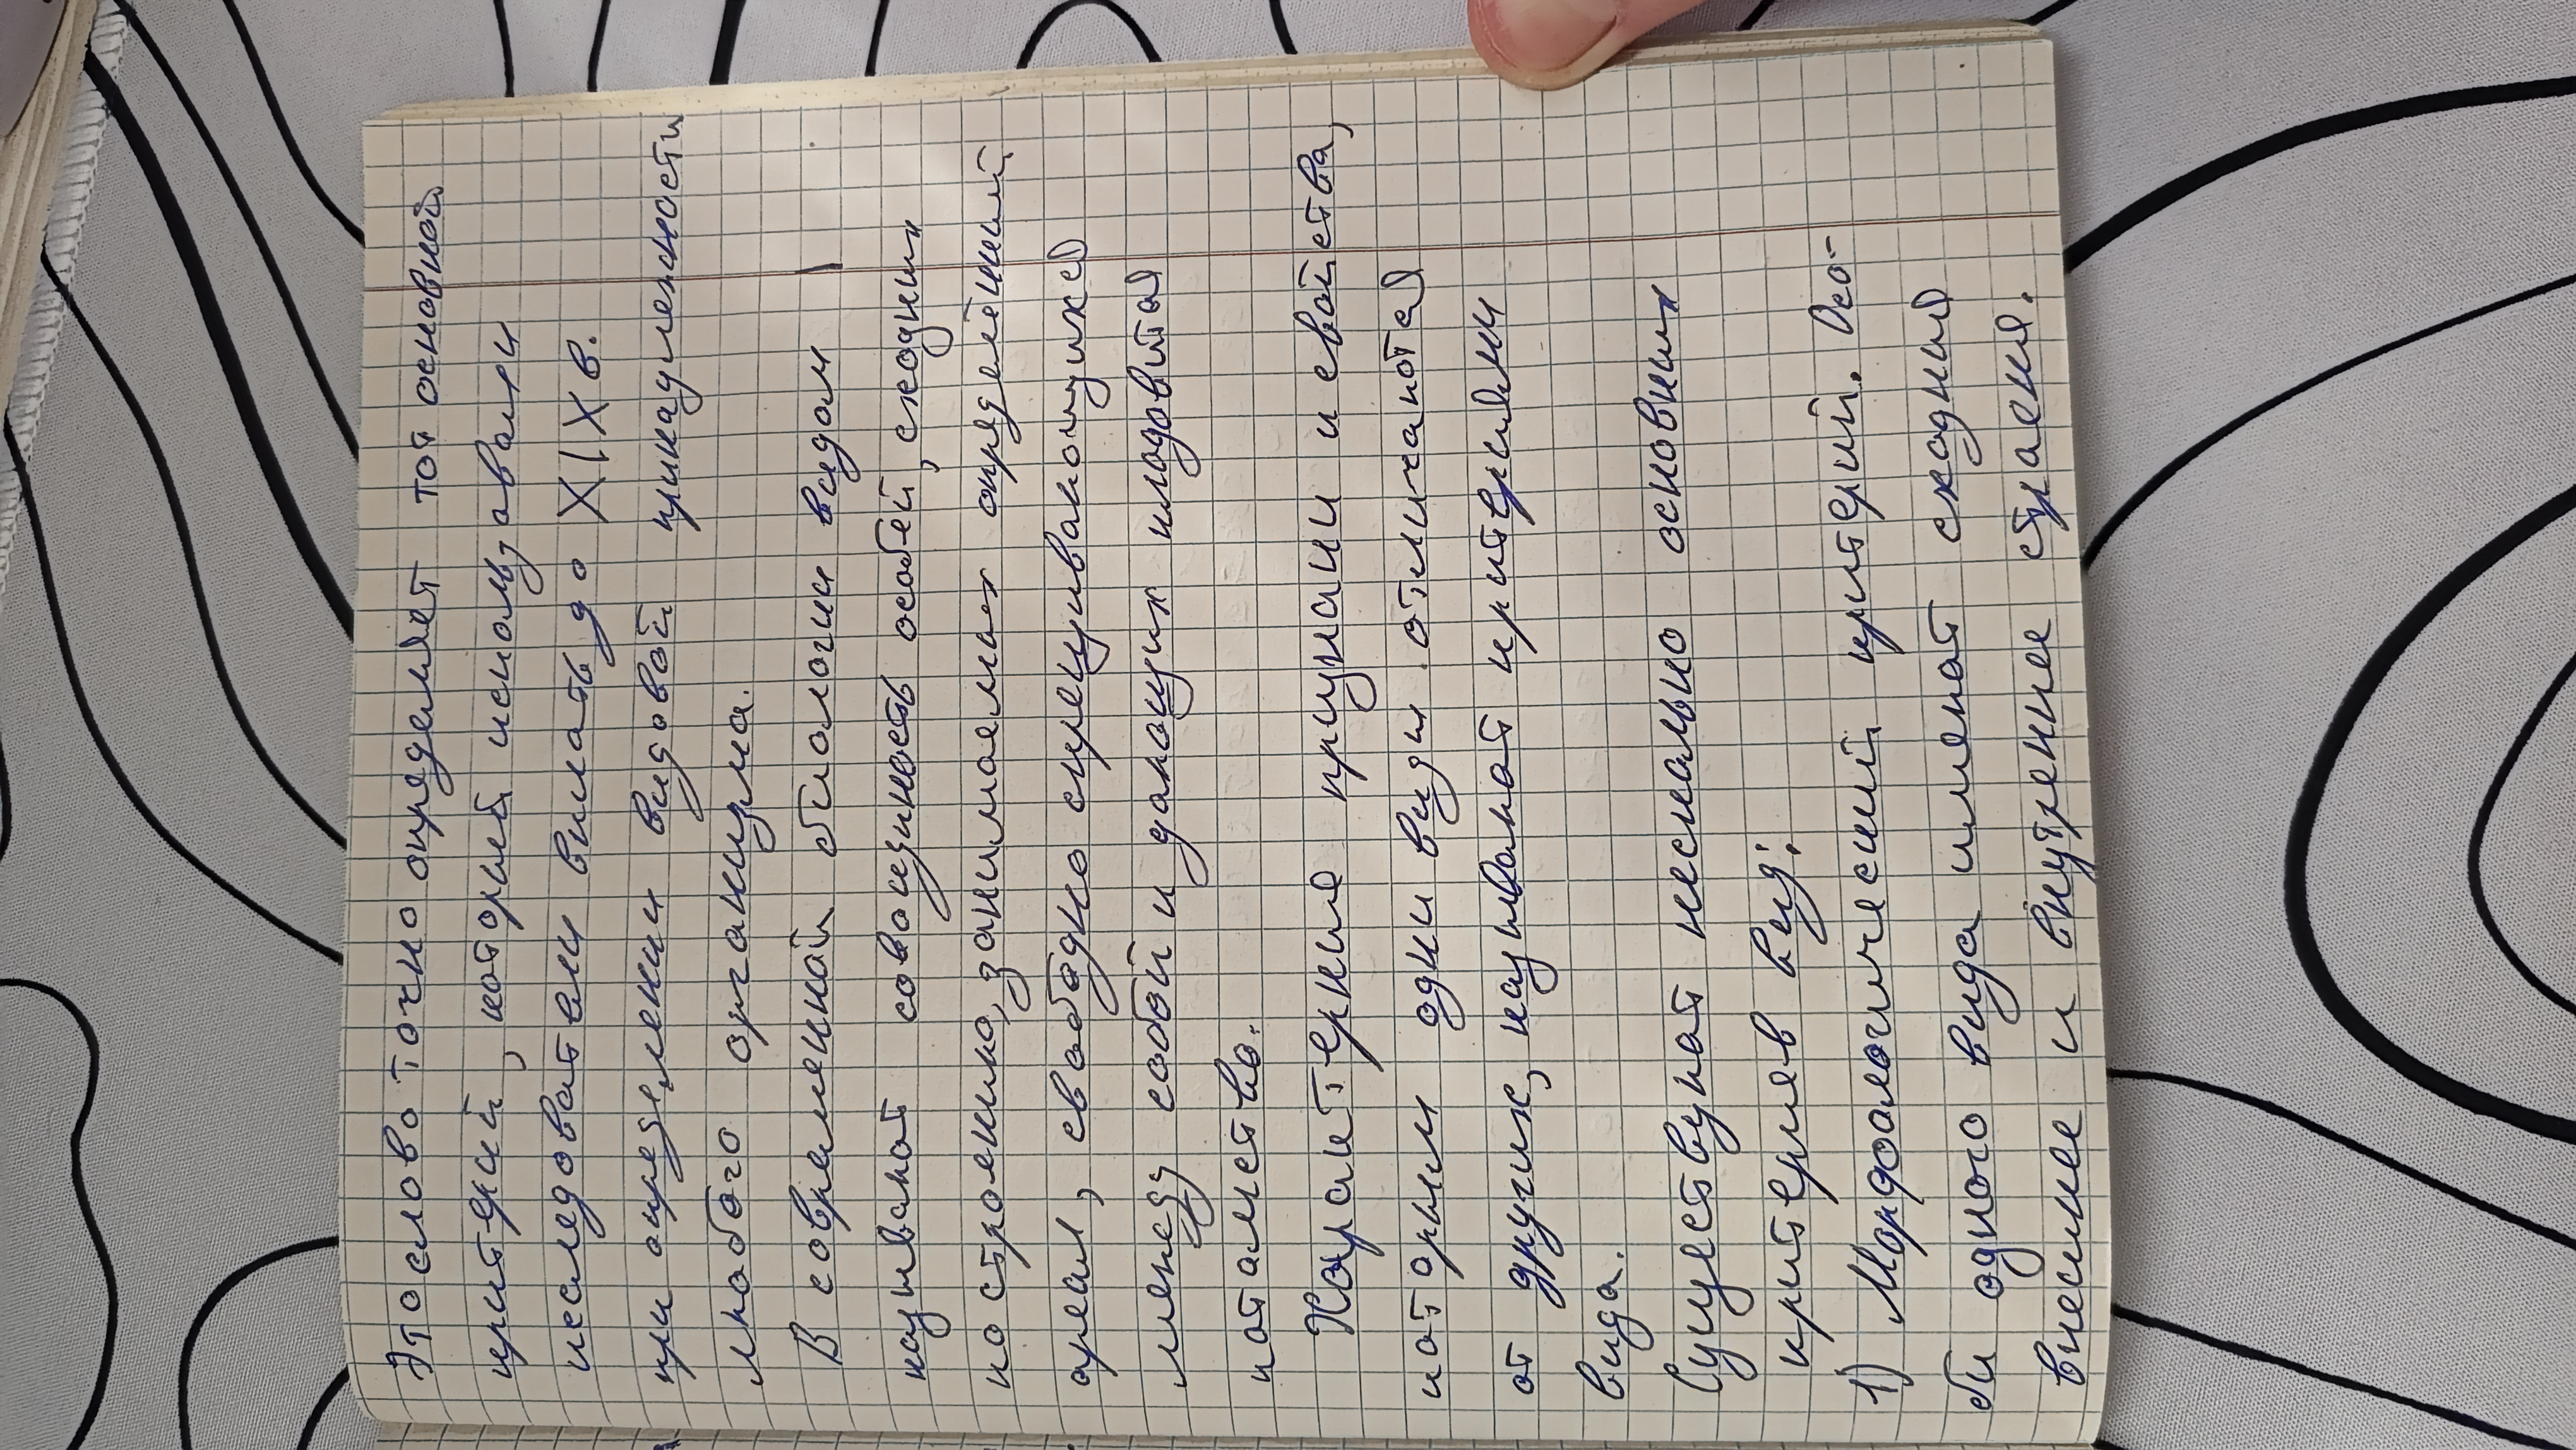 Это слово точно определяет тот основной
критерий, который использовали
исследователи вплоть до XIX в.
при определении видовой принадлежности
любого организма.
В современной биологии видом
называют совокупность особей, сходных
по строению, занимаемых определённый
ареал, свободно скрещивающихся
между собой и дающих плодовитое
потомство.
Характерные признаки и свойства,
которыми одни виды отличаются
от других, называют критериями
вида.
Существует несколько основных
критериев вид:
1) Морфологический критерий. Осо-
би одного вида имеют сходное
внешнее и внутренее строение.